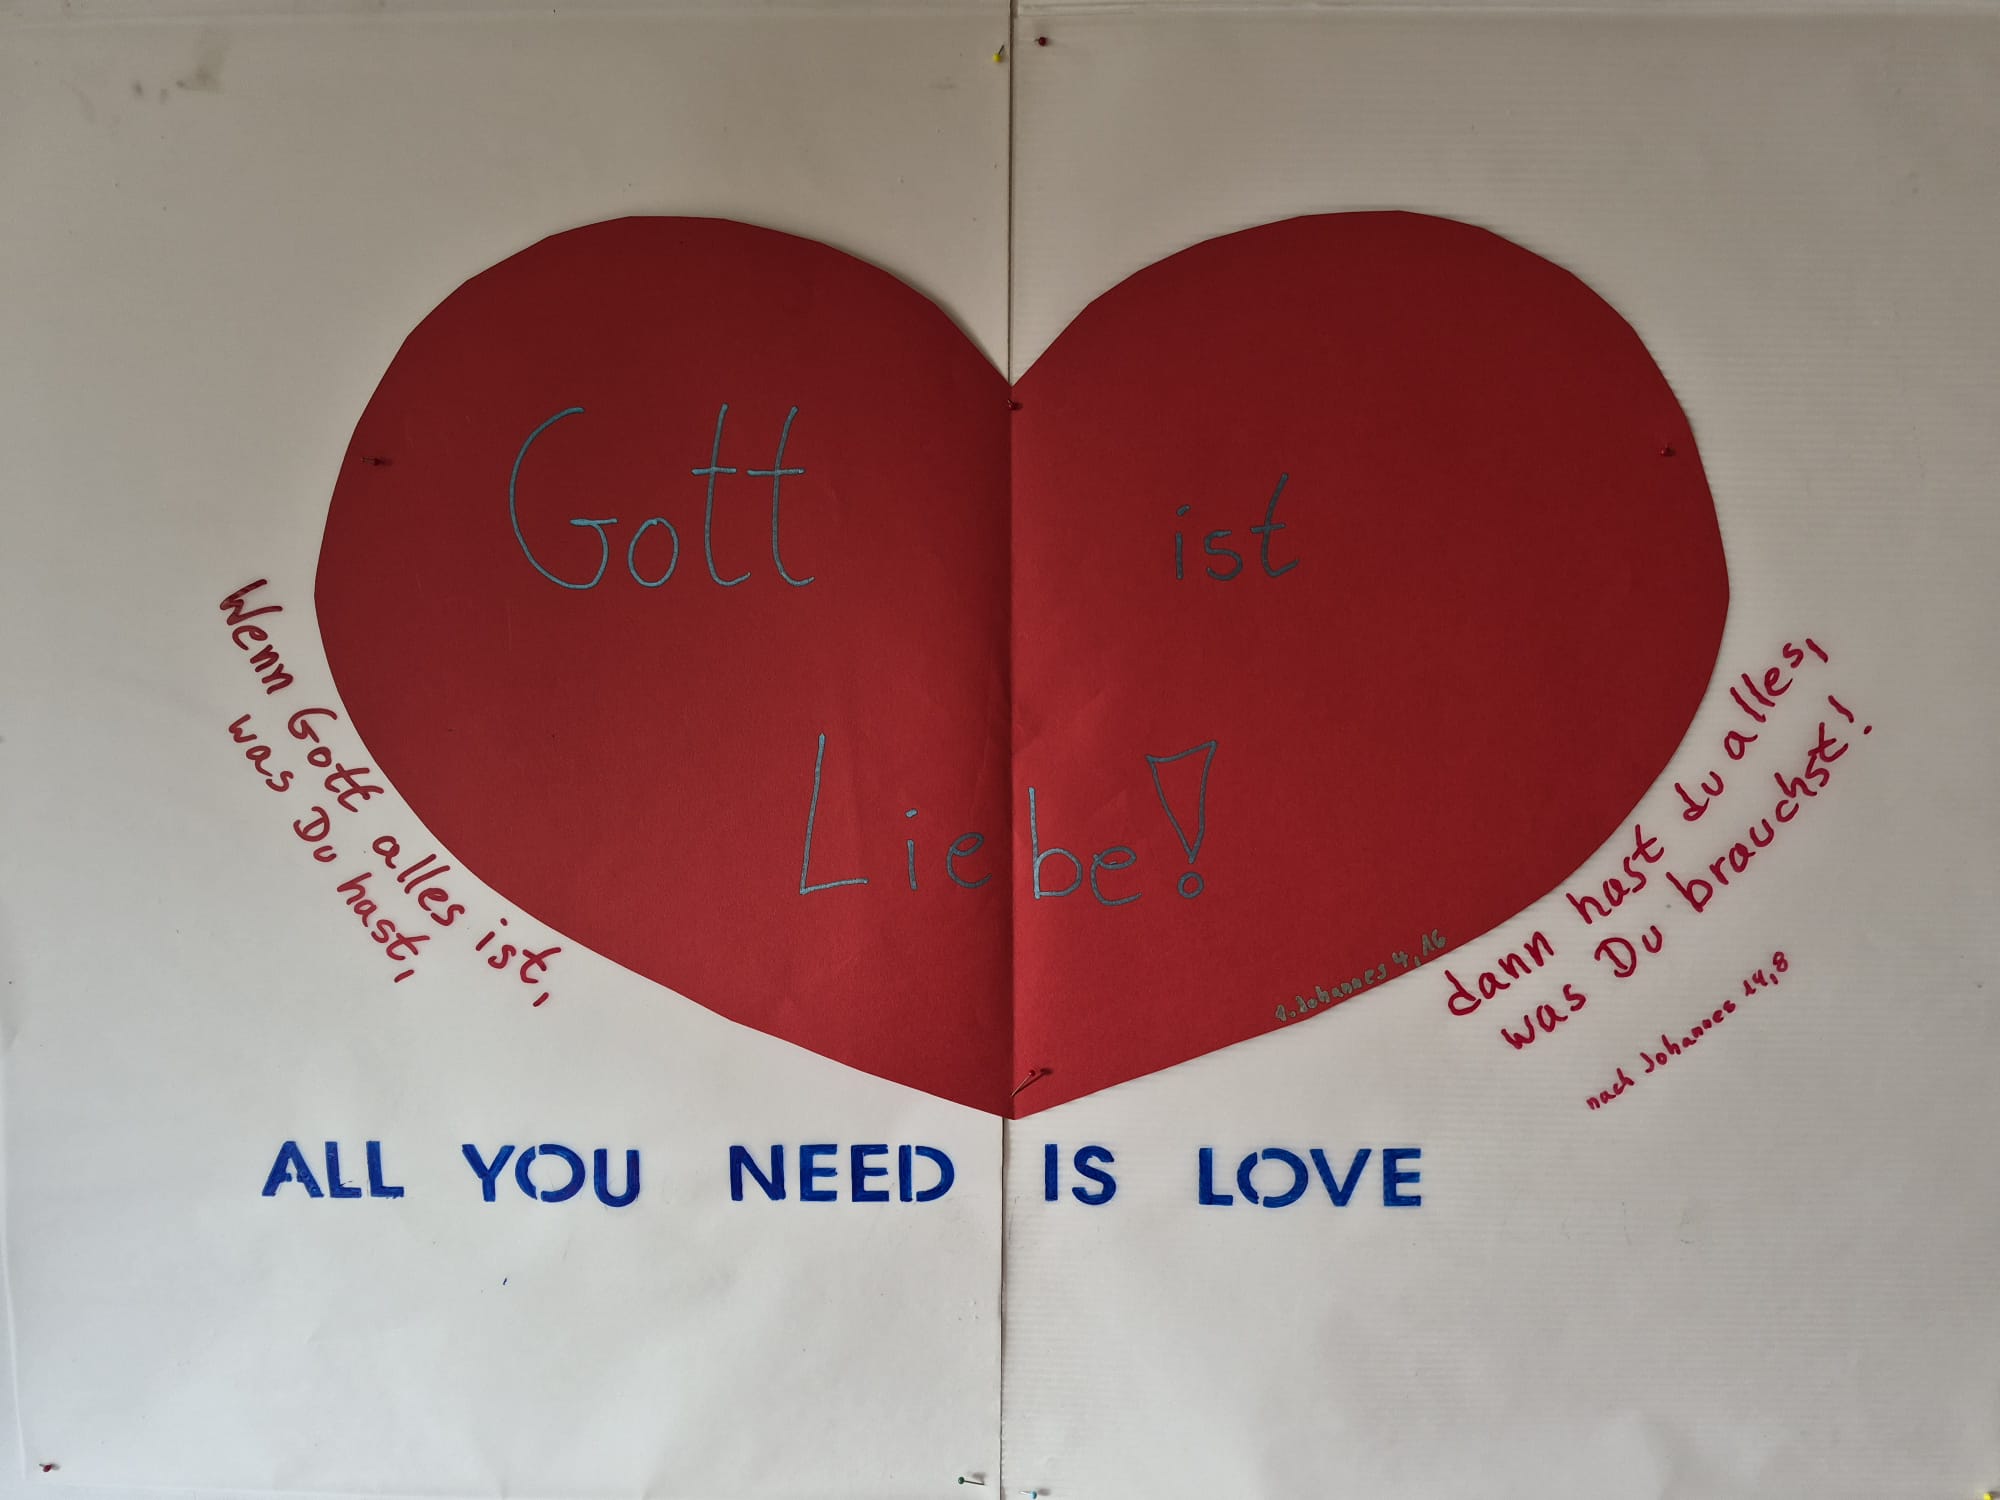 Gott ist
Liebe!
1. Johannes 4, 16
Wenn Gott alles ist,
was Du hast,
dann hast du alles,
was Du brauchst!
nach Johannes 14, 8
ALL YOU NEED IS LOVE